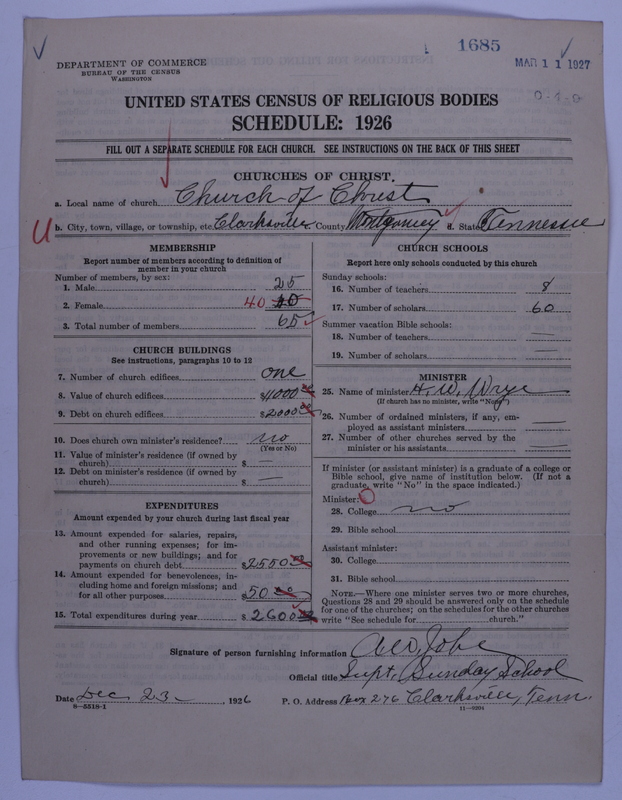 1685
DEPARTMENT OF COMMERCE
BUREAU OF THE CENSUS
WASHINGTON
MAR 11 1927
UNITED STATES CENSUS OF RELIGIOUS BODIES
SCHEDULE: 1926
FILL OUT A SEPARATE SCHEDULE FOR EACH CHURCH. SEE INSTRUCTIONS ON THE BACK OF THIS SHEET
CHURCHES OF CHRIST.
a. Local name of church Church of Christ
U
b. City, town, village, or township, etc. Clarksville County Montgomery d. State Tennessee
MEMBERSHIP
Report number of members according to definition of
member in your church
Number of members, by sex:
1. Male 25
2. Female 40 40
3. Total number of members 65
CHURCH BUILDINGS
See instructions, paragraphs 10 to 12
7. Number of church edifices one
8. Value of church edifices $11000 00
9. Debt on church edifices $2000 00
10. Does church own minister's residence? no
(Yes or No)
11. Value of minister's residence (if owned by
church) $ —
12. Debt on minister's residence (if owned by
church) $ —
EXPENDITURES
Amount expended by your church during last fiscal year
13. Amount expended for salaries, repairs,
and other running expenses; for im-
provements or new buildings; and for
payments on church debt $2550 00
14. Amount expended for benevolences, in-
cluding home and foreign missions; and
for all other purposes $50 00
15. Total expenditures during year $2600 00
CHURCH SCHOOLS
Report here only schools conducted by this church
Sunday schools:
16. Number of teachers 8
17. Number of scholars 60
Summer vacation Bible schools:
18. Number of teachers —
19. Number of scholars —
MINISTER
25. Name of minister H. W. Wrye
(If church has no minister, write "None")
26. Number of ordained ministers, if any, em-
ployed as assistant ministers —
27. Number of other churches served by the
minister or his assistants —
If minister (or assistant minister) is a graduate of a college or
Bible school, give name of institution below. (If not a
graduate, write "No" in the space indicated.)
Minister:
28. College no
29. Bible school
Assistant minister:
30. College
31. Bible school
NOTE.—Where one minister serves two or more churches,
Questions 28 and 29 should be answered only on the schedule
for one of the churches; on the schedules for the other churches
write "See schedule for church."
Signature of person furnishing information
Official title Supt. Sunday School
Date Dec 23 , 1926 P. O. Address Box 276 Clarksville, Tenn.
8—5518-1 11—9204